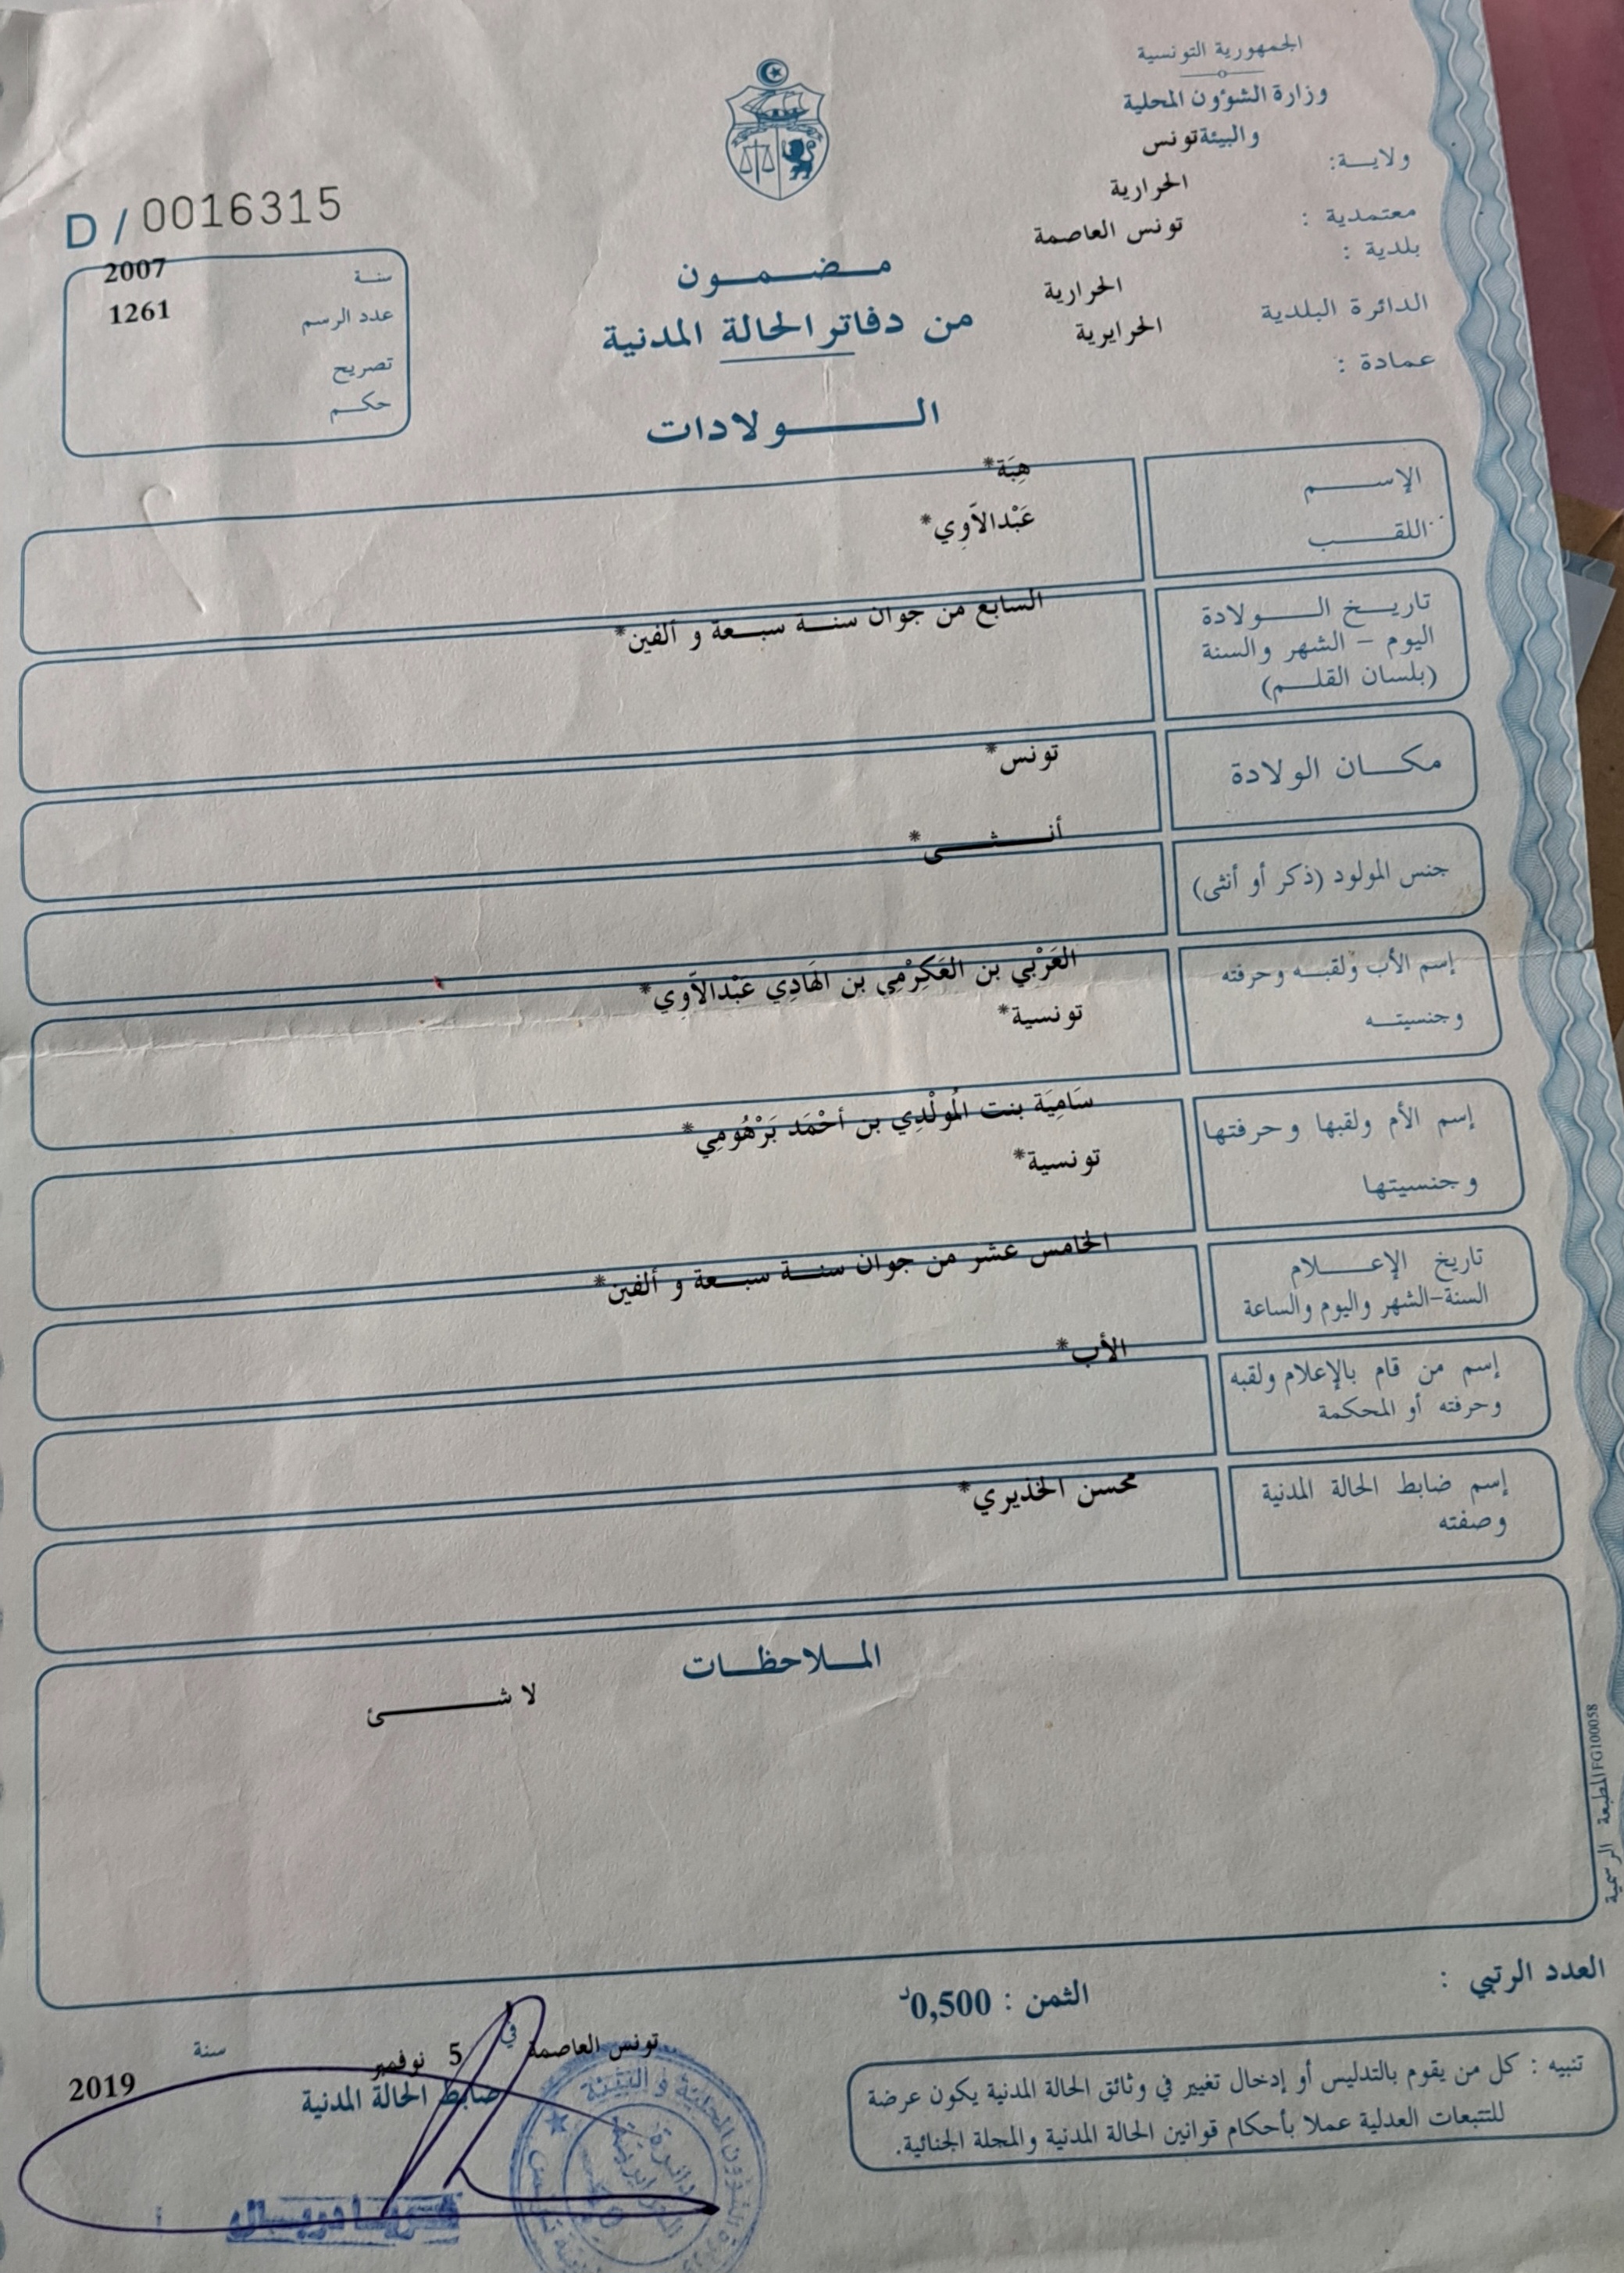 الجمهورية التونسية
وزارة الشؤون المحلية
والبيئة
ولايـة: تونس
معتمدية : الحرارية
بلدية : تونس العاصمة
الدائرة البلدية الحرارية
عمادة : الحرايرية
D / 0016315
سنة 2007
عدد الرسم 1261
تصريح
حكم
مضمون
من دفاتر الحالة المدنية
الولادات
الإسم هِبَة*
اللقب عَبْدالاَوِي*
تاريخ الولادة السابع من جوان سنة سبعة و ألفين*
اليوم – الشهر والسنة
(بلسان القلم)
مكان الولادة تونس*
جنس المولود (ذكر أو أنثى) أنثى*
إسم الأب ولقبه وحرفته العَرْبي بن العَكِرْمِي بن الهَادِي عَبْدالاَوِي*
وجنسيته تونسية*
إسم الأم ولقبها وحرفتها سَامِيَة بنت المُولْدِي بن أحْمَد بَرْهُومِي*
وجنسيتها تونسية*
تاريخ الإعلام الخامس عشر من جوان سنة سبعة و ألفين*
السنة-الشهر واليوم والساعة
إسم من قام بالإعلام ولقبه الأب*
وحرفته أو المحكمة
إسم ضابط الحالة المدنية محسن الخذيري*
وصفته
الملاحظات
لا شئ
المطبعة الرسمية FG100058
العدد الرتبي :
الثمن : 0,500د
تونس العاصمة في 5 نوفمبر سنة 2019
ضابط الحالة المدنية
تنبيه : كل من يقوم بالتدليس أو إدخال تغيير في وثائق الحالة المدنية يكون عرضة
للتتبعات العدلية عملا بأحكام قوانين الحالة المدنية والمجلة الجنائية.